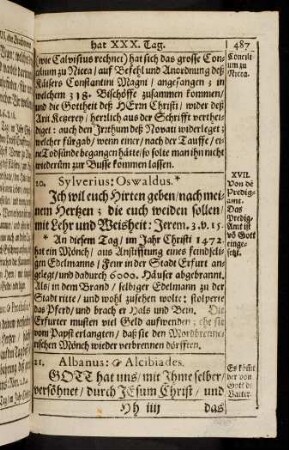 hat XXX. Tag.
487
(wie Calvisius rechnet) hat sich das grosse Con-
cilium zu Nicea/ auf Befehl und Anordnung deß
Käisers Constantini Magni/ angefangen; in
welchem 318. Bischöffe zusammen kommen/
und die Gottheit deß HErrn Christi/ wider deß
Arii Ketzerey/ herrlich aus der Schrifft verthei-
diget: auch den Irrthum deß Novati widerleget;
welcher fürgab/ wenn einer/ nach der Tauffe/ ei-
ne Todsünde begangen hätte/ so solte man ihn nicht
wiederüm zur Busse kommen lassen.
Concili-
um zu
Nicea.
20. Sylverius: Oswaldus.*
Ich wil euch Hirten geben/ nach mei-
nem Hertzen; die euch weiden sollen/
mit Lehr und Weisheit: Jerem. 3. v. 15.
* An diesem Tag/ im Jahr Christi 1472.
hat ein Mönch/ aus Anstifftung eines feindseli-
gen Edelmanns/ Feur in der Stadt Erfurt an-
gelegt/ und dadurch 6000. Häuser abgebrannt,
Als/ in dem Brand/ selbiger Edelmann zu der
Stadt ritte/ und wohl zusehen wolte; stolperte
das Pferd/ und brach er Hals und Bein. Die
Erfurter musten viel Geld aufwenden; ehe sie
vom Papst erlangten/ daß sie den Mordbrenne-
rischen Mönch wieder verbrennen dörfften.
XVII.
Von dē
Predig-
amt.
Das
Predig-
Amt ist
vō Gott
einge-
setzt.
21. Albanus: & Alcibiades.
GOTT hat uns/ mit Ihme selber/
versöhnet/ durch JEsum Christ/ und
Hh iiij das